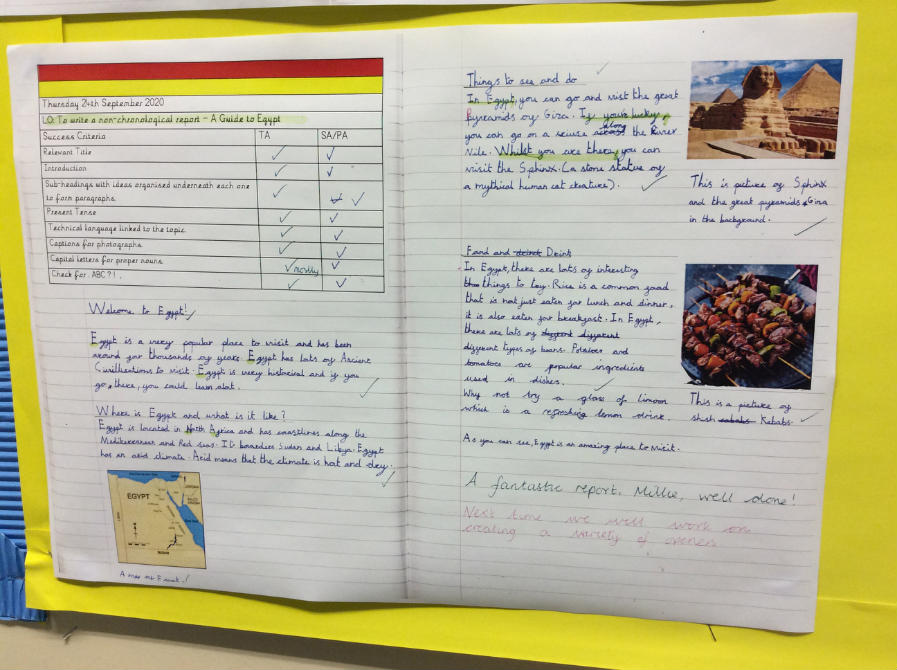 Thursday 24th September 2020
LO: To write a non-chronological report - A Guide to Egypt
Success Criteria TA SA/PA
Relevant Title
Introduction
Sub-headings with ideas organised underneath each one
to form paragraphs.
Present Tense
Technical language linked to the topic.
Captions for photographs.
Capital letters for proper nouns. mostly
Check for: ABC?!,
Welcome to Egypt!
Egypt is a very popular place to visit and has been
around for thousands of years. Egypt has lots of Ancient
Civilizations to visit. Egypt is very historical and if you
go there, you could learn alot.
Where is Egypt and what is it like?
Egypt is located in North Africa and has coastlines along the
Mediterranean and Red seas. It boarders Sudan and Libya. Egypt
has an acid climate. Acid means that the climate is hot and dry.
EGYPT
SUDAN
A map of Egypt!
Things to see and do
In Egypt, you can go and visit the great
Pyramids of Giza. If you're lucky,
you can go on a along the River
Nile. Whilst you are there, you can
visit the Sphinx. (a stone statue of
a mythical human cat creature).
This is picture of Sphinx
and the great pyramids of Giza
in the background.
Food and Drink
In Egypt, there are lots of interesting
things to try. Rice is a common food
that is not just eaten for lunch and dinner,
it is also eaten for breakfast. In Egypt,
there are lots of
different types of beans. Potatoes and
tomatoes are popular ingredients
used in dishes.
Why not try a glass of limoon
which is a refreshing lemon drink.
This is a picture of
shish Kebabs.
As you can see, Egypt is an amazing place to visit.
A fantastic report, Millie, well done!
Next time we will work on
creating a variety of openers